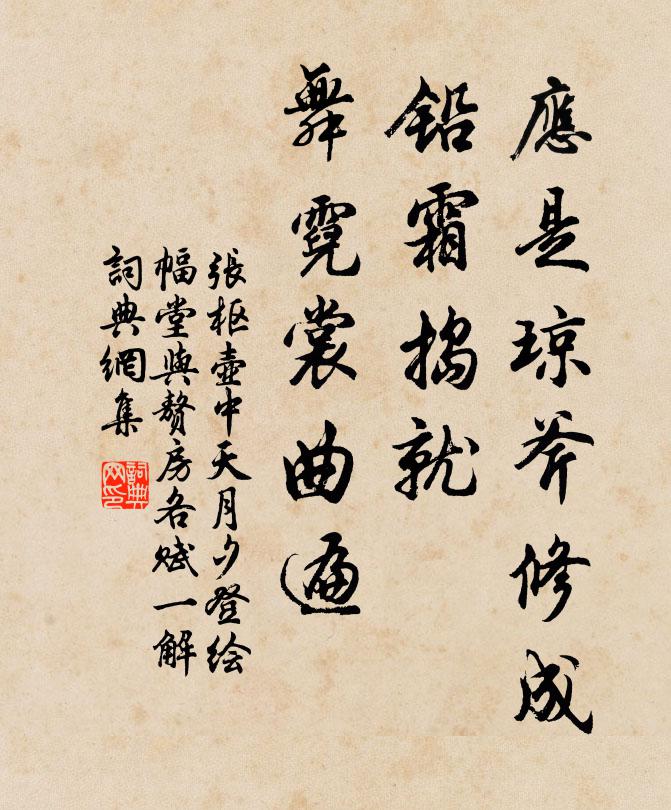 應是琼斧修成
鉛霜搗就
舞霓裳曲遍
張枢壺中天月夕登绘
幅堂與贅房各赋一解
詞典網集
詞典网印